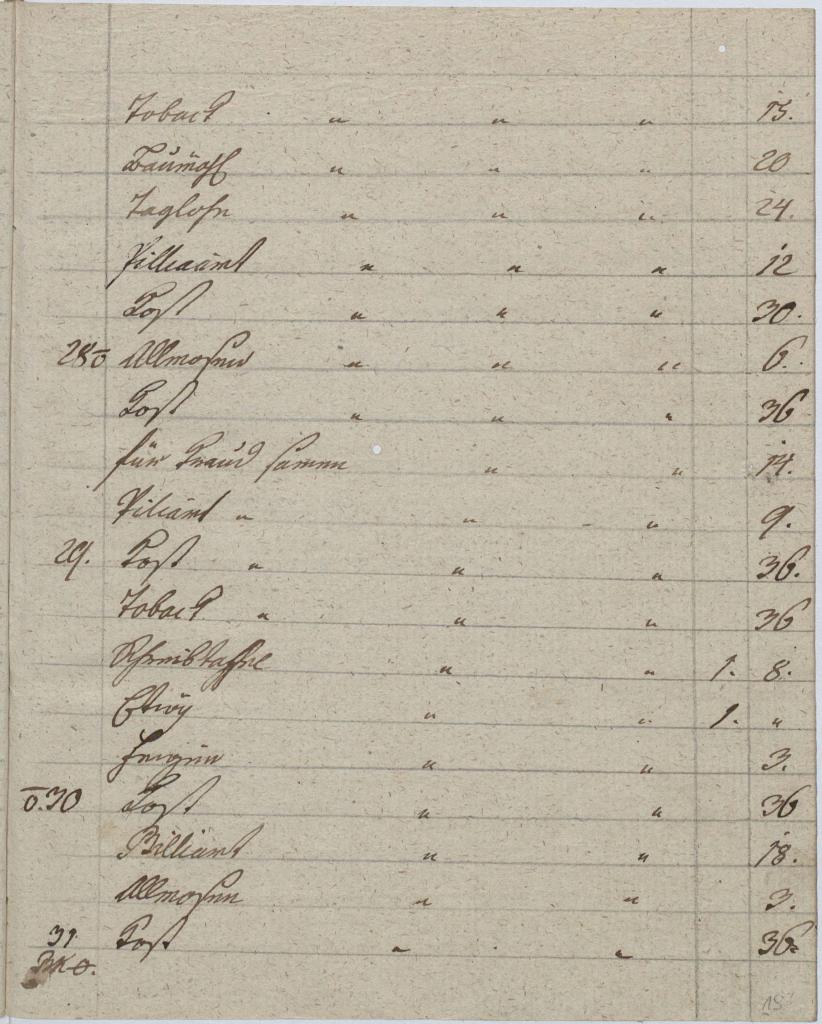 Toback " " " 15.
Baumöhl " " " 20
Taglohn " " " 24.
Pilliaamt " " " 12
Kost " " " 30.
28 Allmosen " " " 6.
Kost " " " 36
für Kraud samen " " 14.
Piliamt " " " 9.
29. Kost " " " 36.
Toback " " " 36
Schreibtaffel " " 1. 8.
Etwy " " 1. "
" " 3.
30 Kost " " 36
Billiamt " " 18.
Allmosen " " 3.
31 Kost " " 36.
18